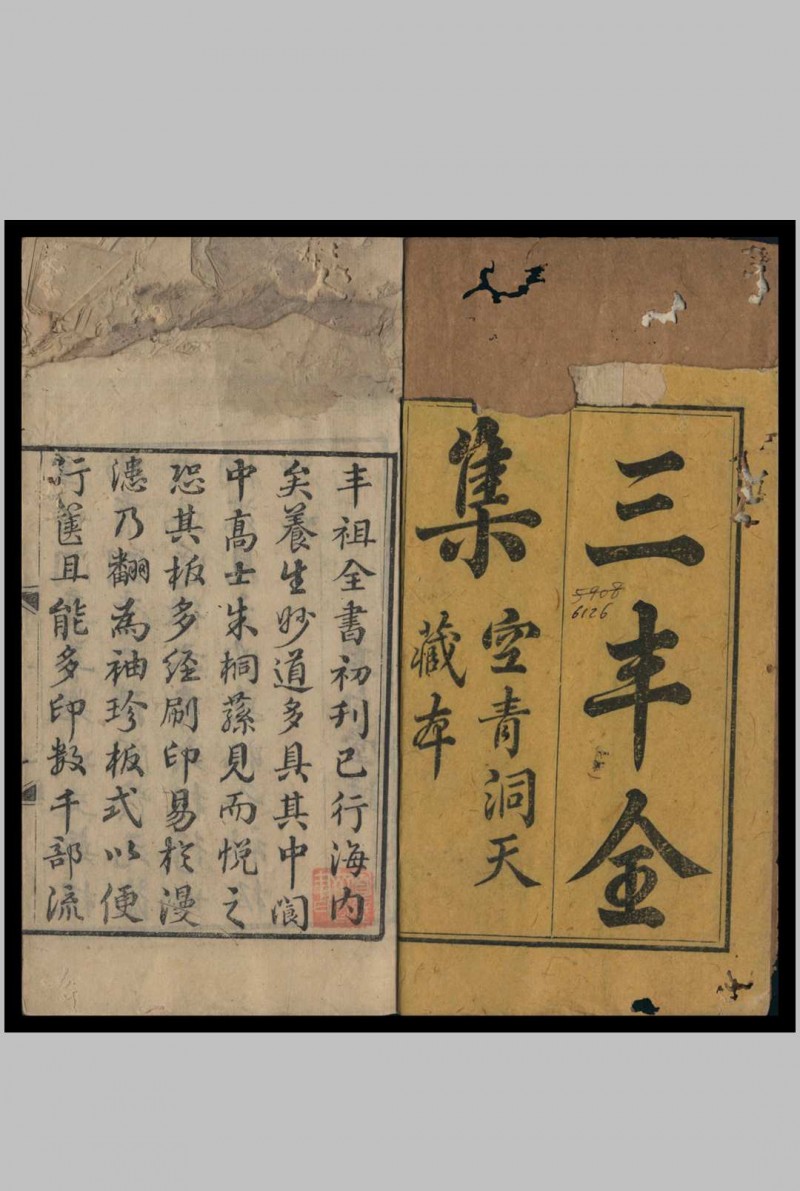 三丰全
集
空青洞天
藏本
5908
6126
丰祖全書初刊已行海内
矣養生妙道多具其中閬
中高士朱桐蓀見而悅之
恐其板多經刷印易於漫
漶乃翻為袖珍板式以便
行篋且能多印數千部流